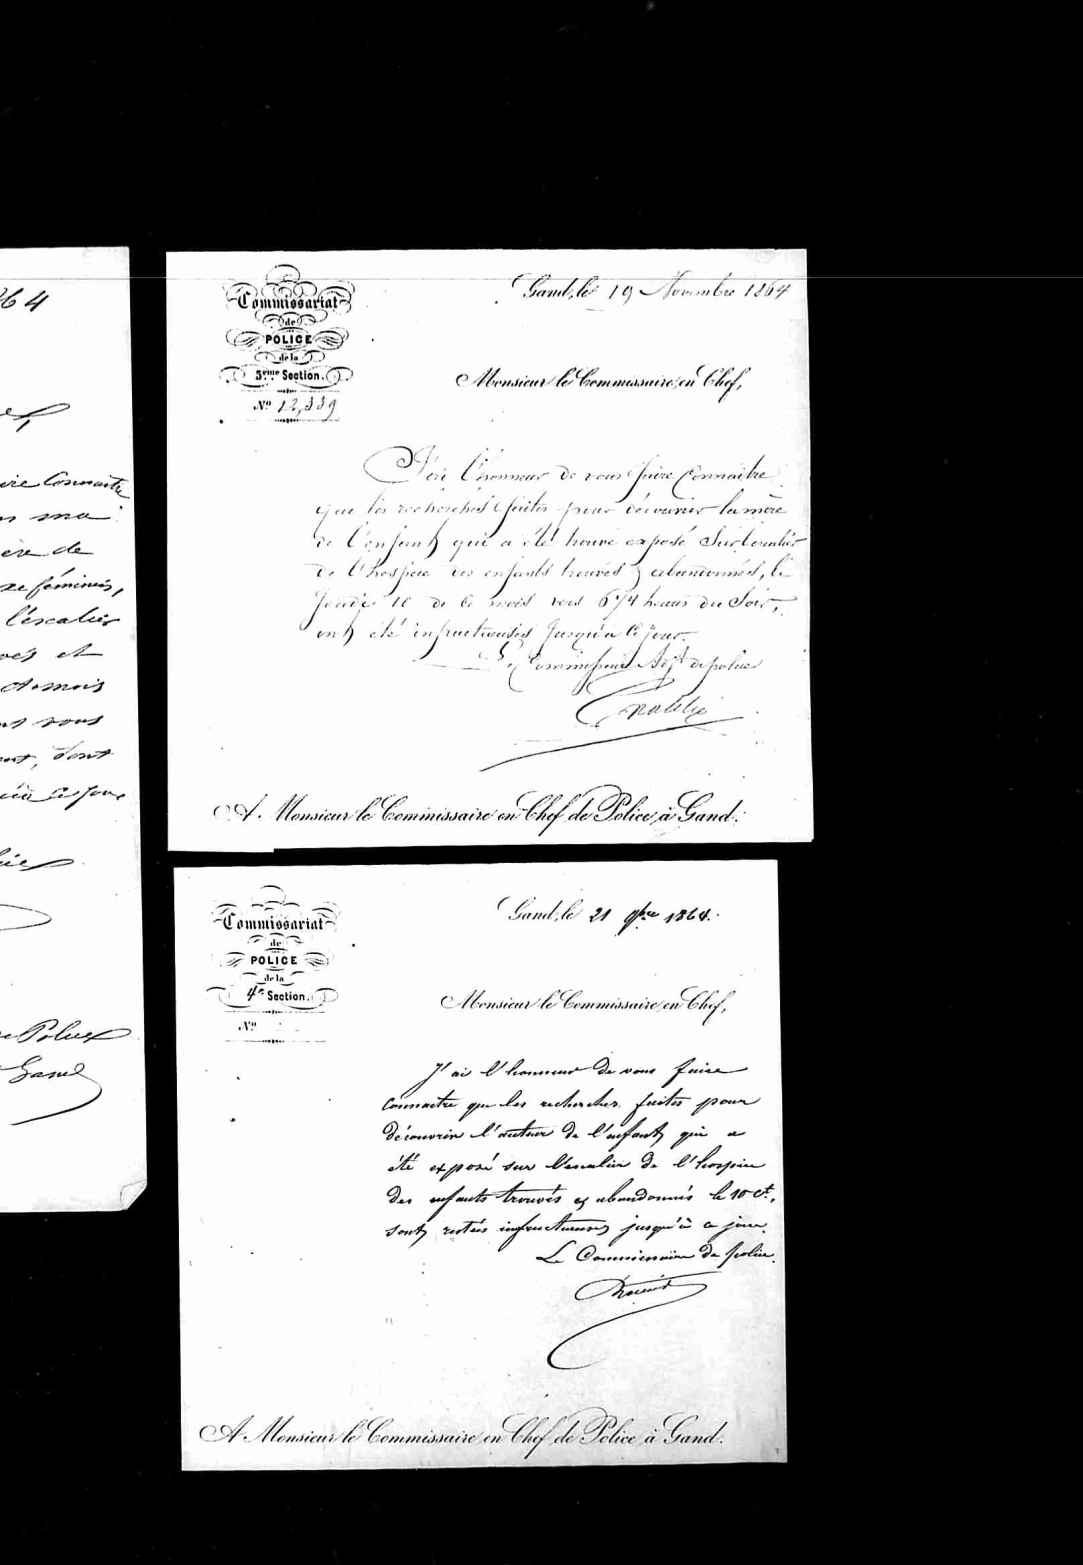 64
ire Connaitre
ma
ère de
xe féminin,
l'escalier
et
ct mois
vous
dont
ce jour
Police
Gand
Commissariat
de
POLICE
de la
3eme Section.
No 12,339
Gand, le 19 Novembre 1864
Monsieur le Commissaire en Chef,
J'ai l'honneur de vous faire Connaitre
que les recherches faites pour découvrir la mère
de l'enfant qui a été trouvé exposé Sur l'escalier
de l'hospice des enfants trouvés & abandonnés, le
Jeudi 10 de ce mois vers 6 3/4 heures du Soir,
ont été infructueuses Jusqu'à ce Jour.
Le Commissaire Adjt de police
A Monsieur le Commissaire en Chef de Police, à Gand.
Commissariat
de
POLICE
de la
4e Section.
No
Gand, le 21 9bre 1864.
Monsieur le Commissaire en Chef,
J'ai l'honneur de vous faire
connaitre que les recherches faites pour
découvrir l'auteur de l'enfant qui a
été exposé sur l'escalier de l'hospice
des enfants trouvés et abandonnés le 10 ct,
sont restées infructueuses jusqu'à ce jour.
Le Commissaire de police.
A Monsieur le Commissaire en Chef de Police à Gand.